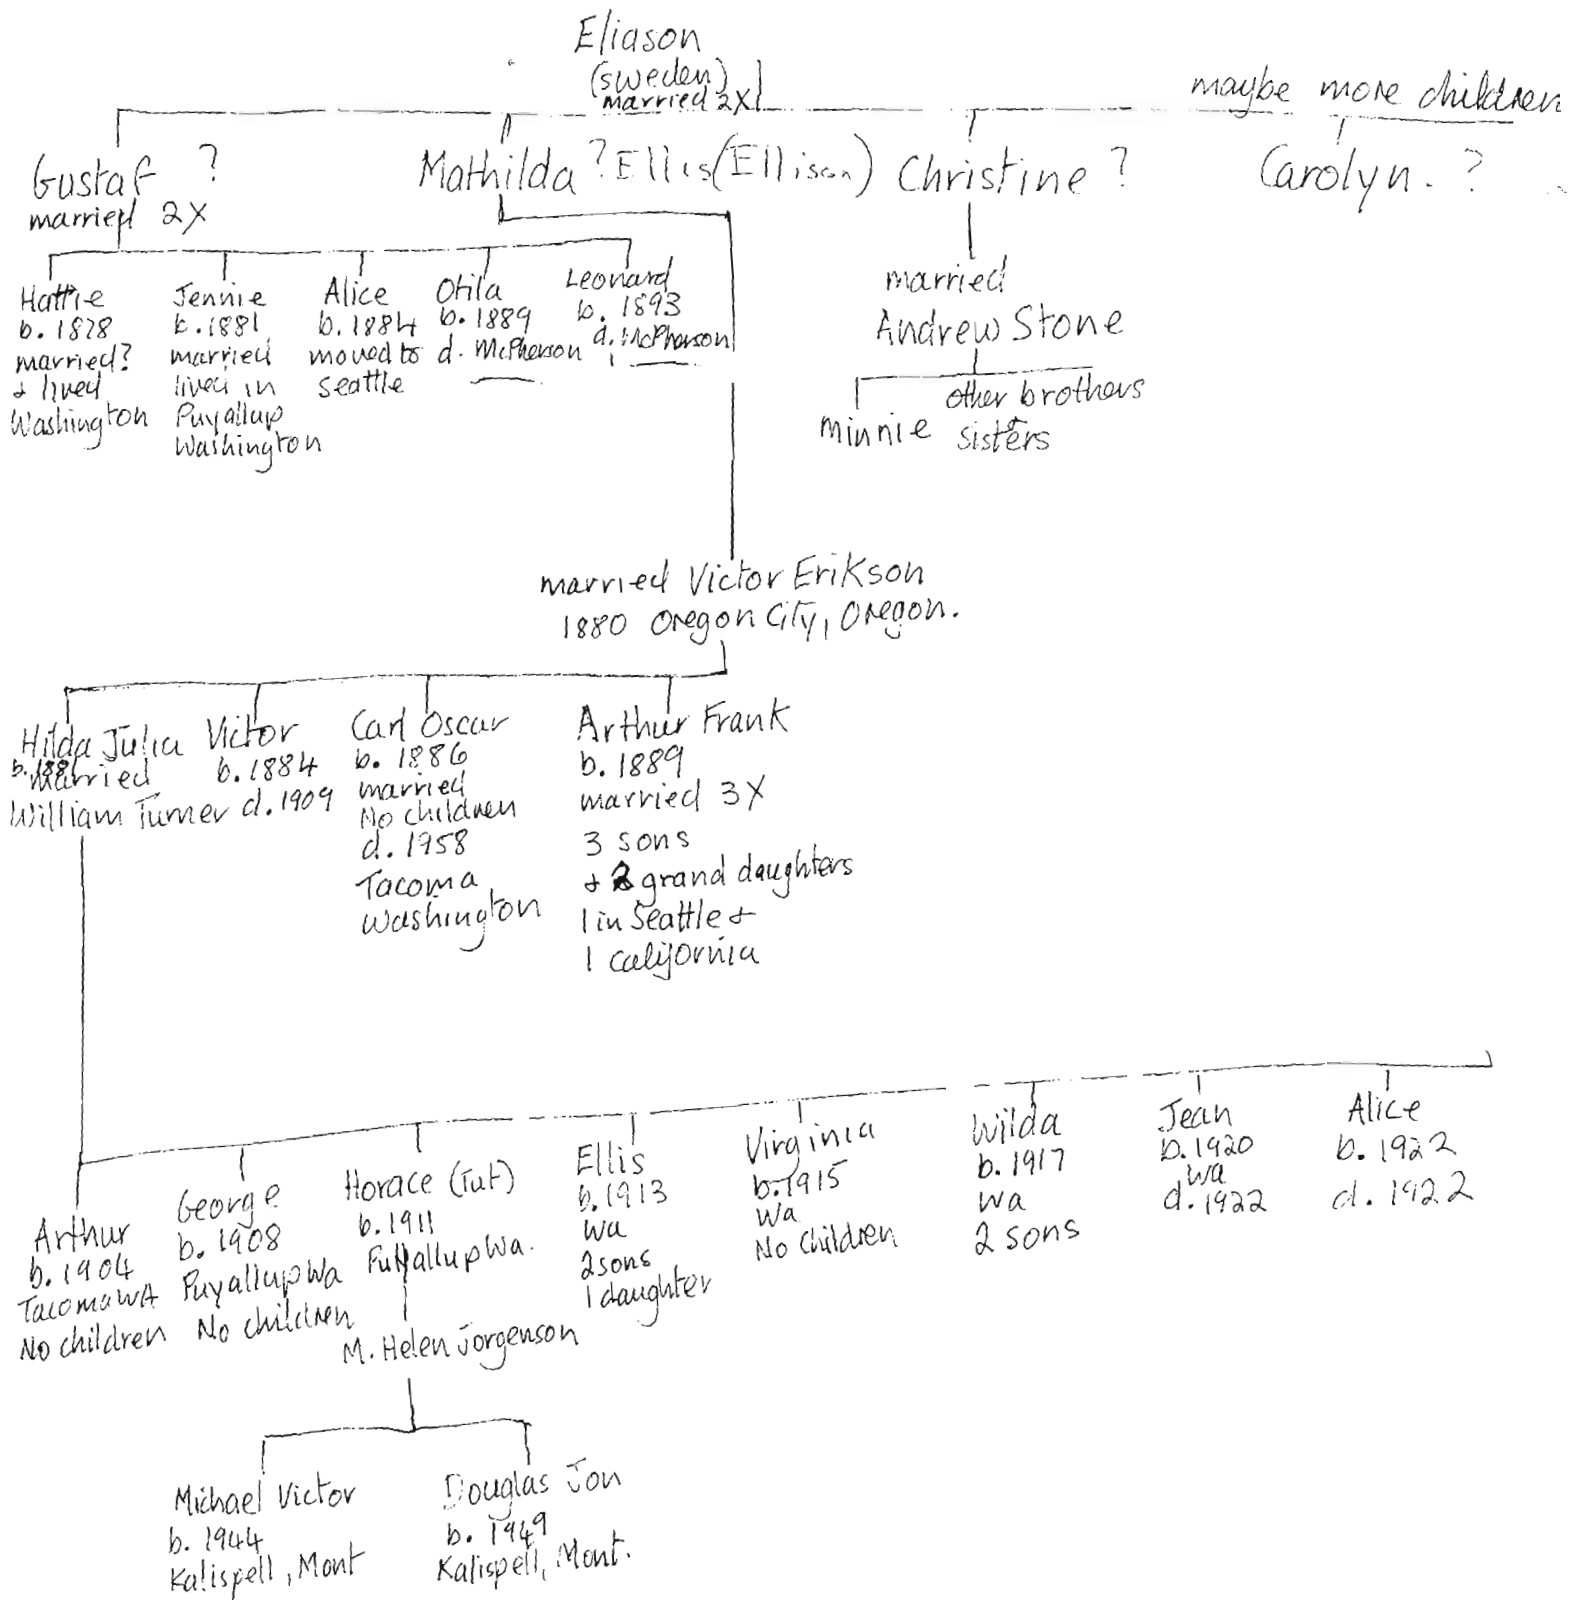 Eliason
(sweden)
married 2X
maybe more children
Gustaf ?
married 2X
Mathilda ? Ellis (Ellison)
Christine ?
Carolyn. ?
Hattie
b. 1878
married?
& lived
Washington
Jennie
b. 1881
married
lived in
Puyallup
Washington
Alice
b. 1884
moved to
Seattle
Otila
b. 1889
d. McPherson
Leonard
b. 1893
d. McPherson
married
Andrew Stone
Minnie
other brothers
+
sisters
married Victor Erikson
1880 Oregon City, Oregon.
Hilda Julia
b. 1881
married
William Turner
Victor
b. 1884
d. 1909
Carl Oscar
b. 1886
married
No children
d. 1958
Tacoma
Washington
Arthur Frank
b. 1889
married 3X
3 sons
& 2 grand daughters
1 in Seattle &
1 California
Arthur
b. 1904
Tacoma WA
No children
George
b. 1908
Puyallup Wa
No children
Horace (Tut)
b. 1911
Puyallup Wa.
M. Helen Jorgenson
Ellis
b. 1913
Wa
2 sons
1 daughter
Virginia
b. 1915
Wa
No Children
Wilda
b. 1917
Wa
2 sons
Jean
b. 1920
Wa
d. 1922
Alice
b. 1922
d. 1922
Michael Victor
b. 1944
Kalispell, Mont
Douglas Jon
b. 1949
Kalispell, Mont.